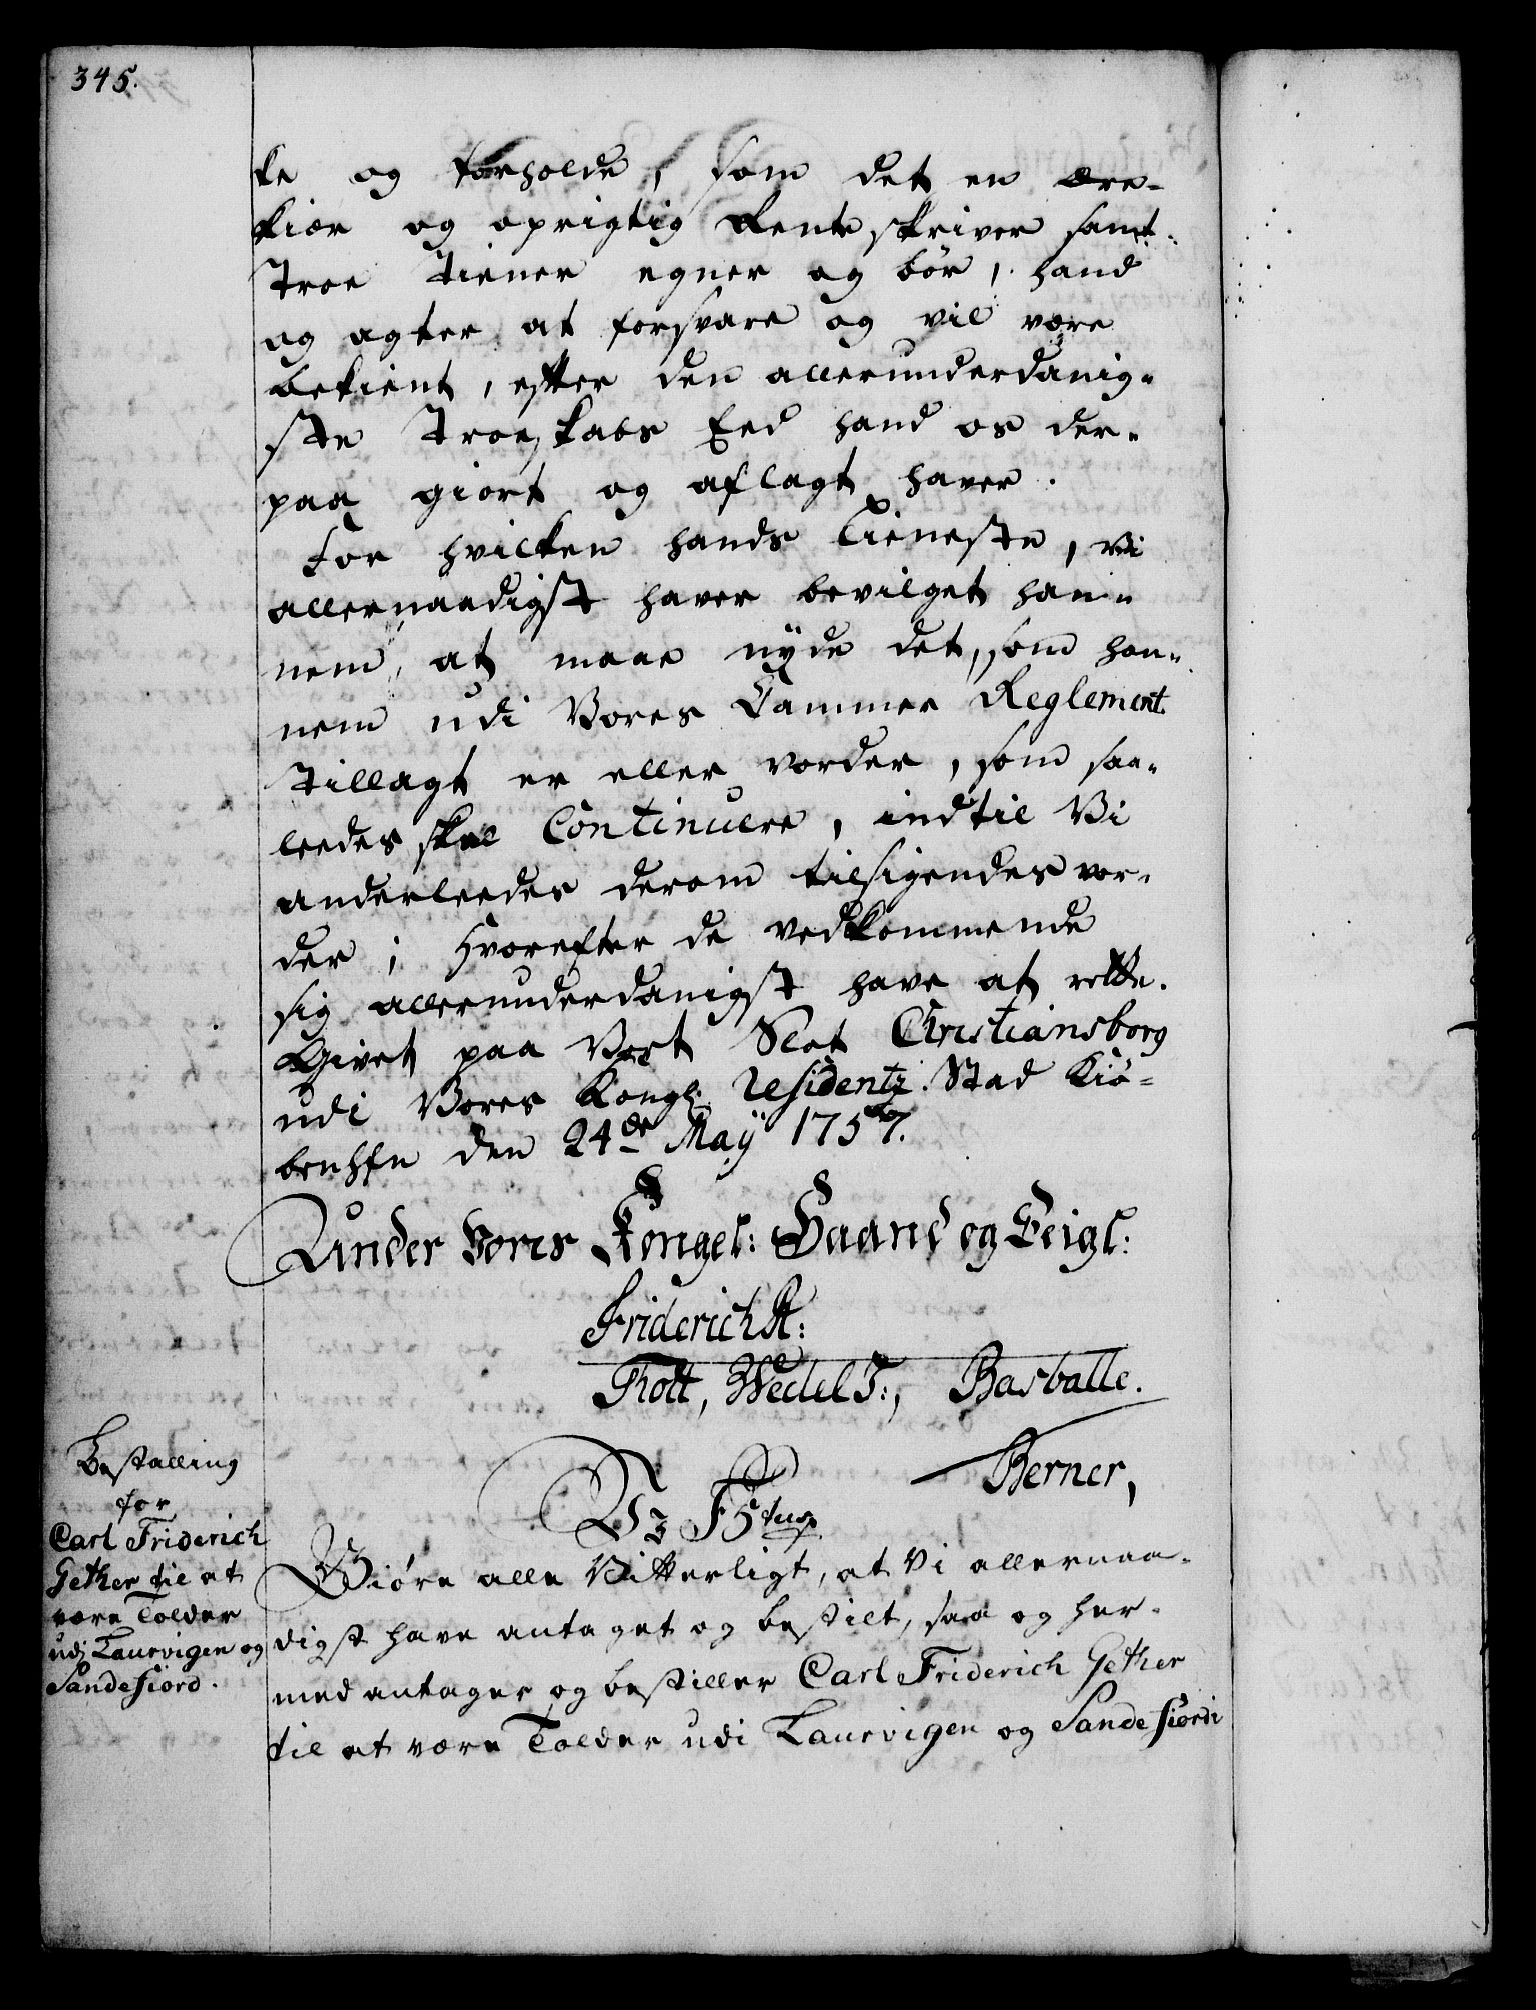 345.
ke og forholde, som det en ære-
kiær og oprigtig Rente skriver samt
troe tiener egner og bør, hand
og agter at forsvare og vil være
bekient, efter den allerunderdanig-
ste Troeskabs Eed hand os der-
paa giort og aflagt haver.
For hvilken hands tieneste, vi
allernaadigst haver bevilget han-
nem, at maae nÿde det, som han-
nem udi Vores Cammer Reglement
tillagt er eller vorder, som saa-
leedes skal Continuere, indtil Vi
anderleedes derom tilsigendes vor-
der; Hvorefter de vedkommende
sig allerunderdanigst have at rette.
Givet paa Vort Slot Christiansborg
udi Vores Kongl: Residentz Stad Kiø-
benhfn den 24de Maÿ 1757.
Under Vores Kongel: Haand og Seigl:
Friderich R:
Thott, Wedel F:, Basballe.
Berner,
Bestalling
for
Carl Friderich
Gether til at
være Tolder
udi Laurvigen og
Sandefiord.
Vi F 5tus
Giøre alle Vitterligt, at Vi allernaa-
digst have antaget og bestilt, saa og her-
med antager og bestiller Carl Friderich Gether
til at være Tolder udi Laurvigen og Sandefiord i